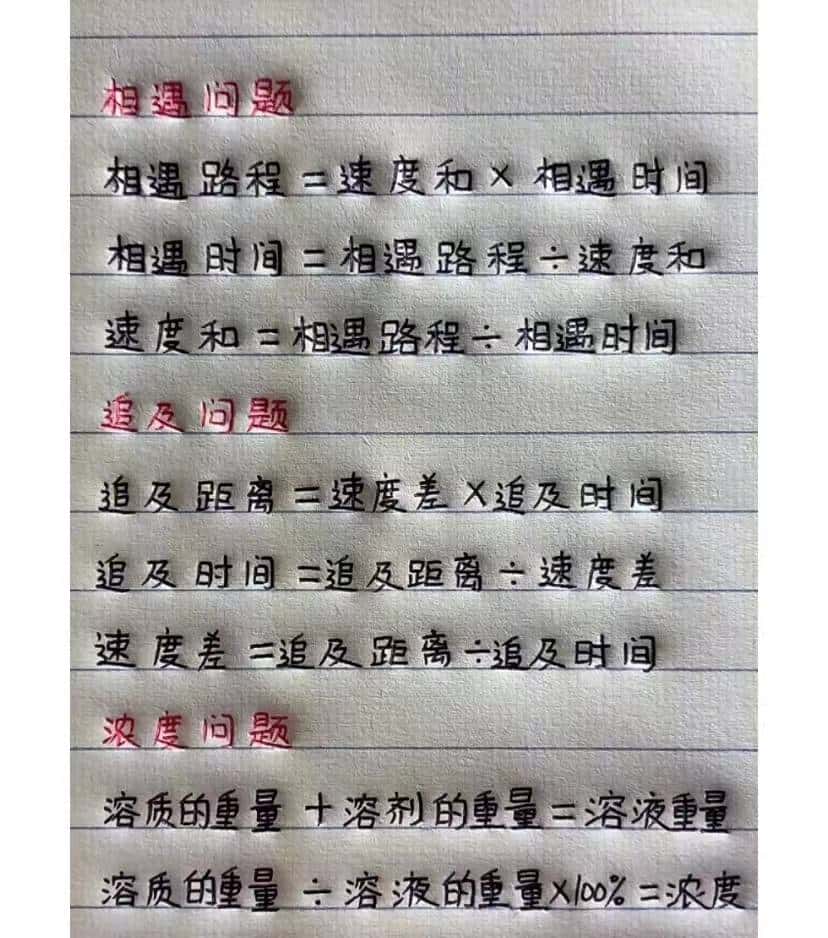 相遇问题
相遇路程=速度和×相遇时间
相遇时间=相遇路程÷速度和
速度和=相遇路程÷相遇时间
追及问题
追及距离=速度差×追及时间
追及时间=追及距离÷速度差
速度差=追及距离÷追及时间
浓度问题
溶质的重量+溶剂的重量=溶液重量
溶质的重量÷溶液的重量×100%=浓度